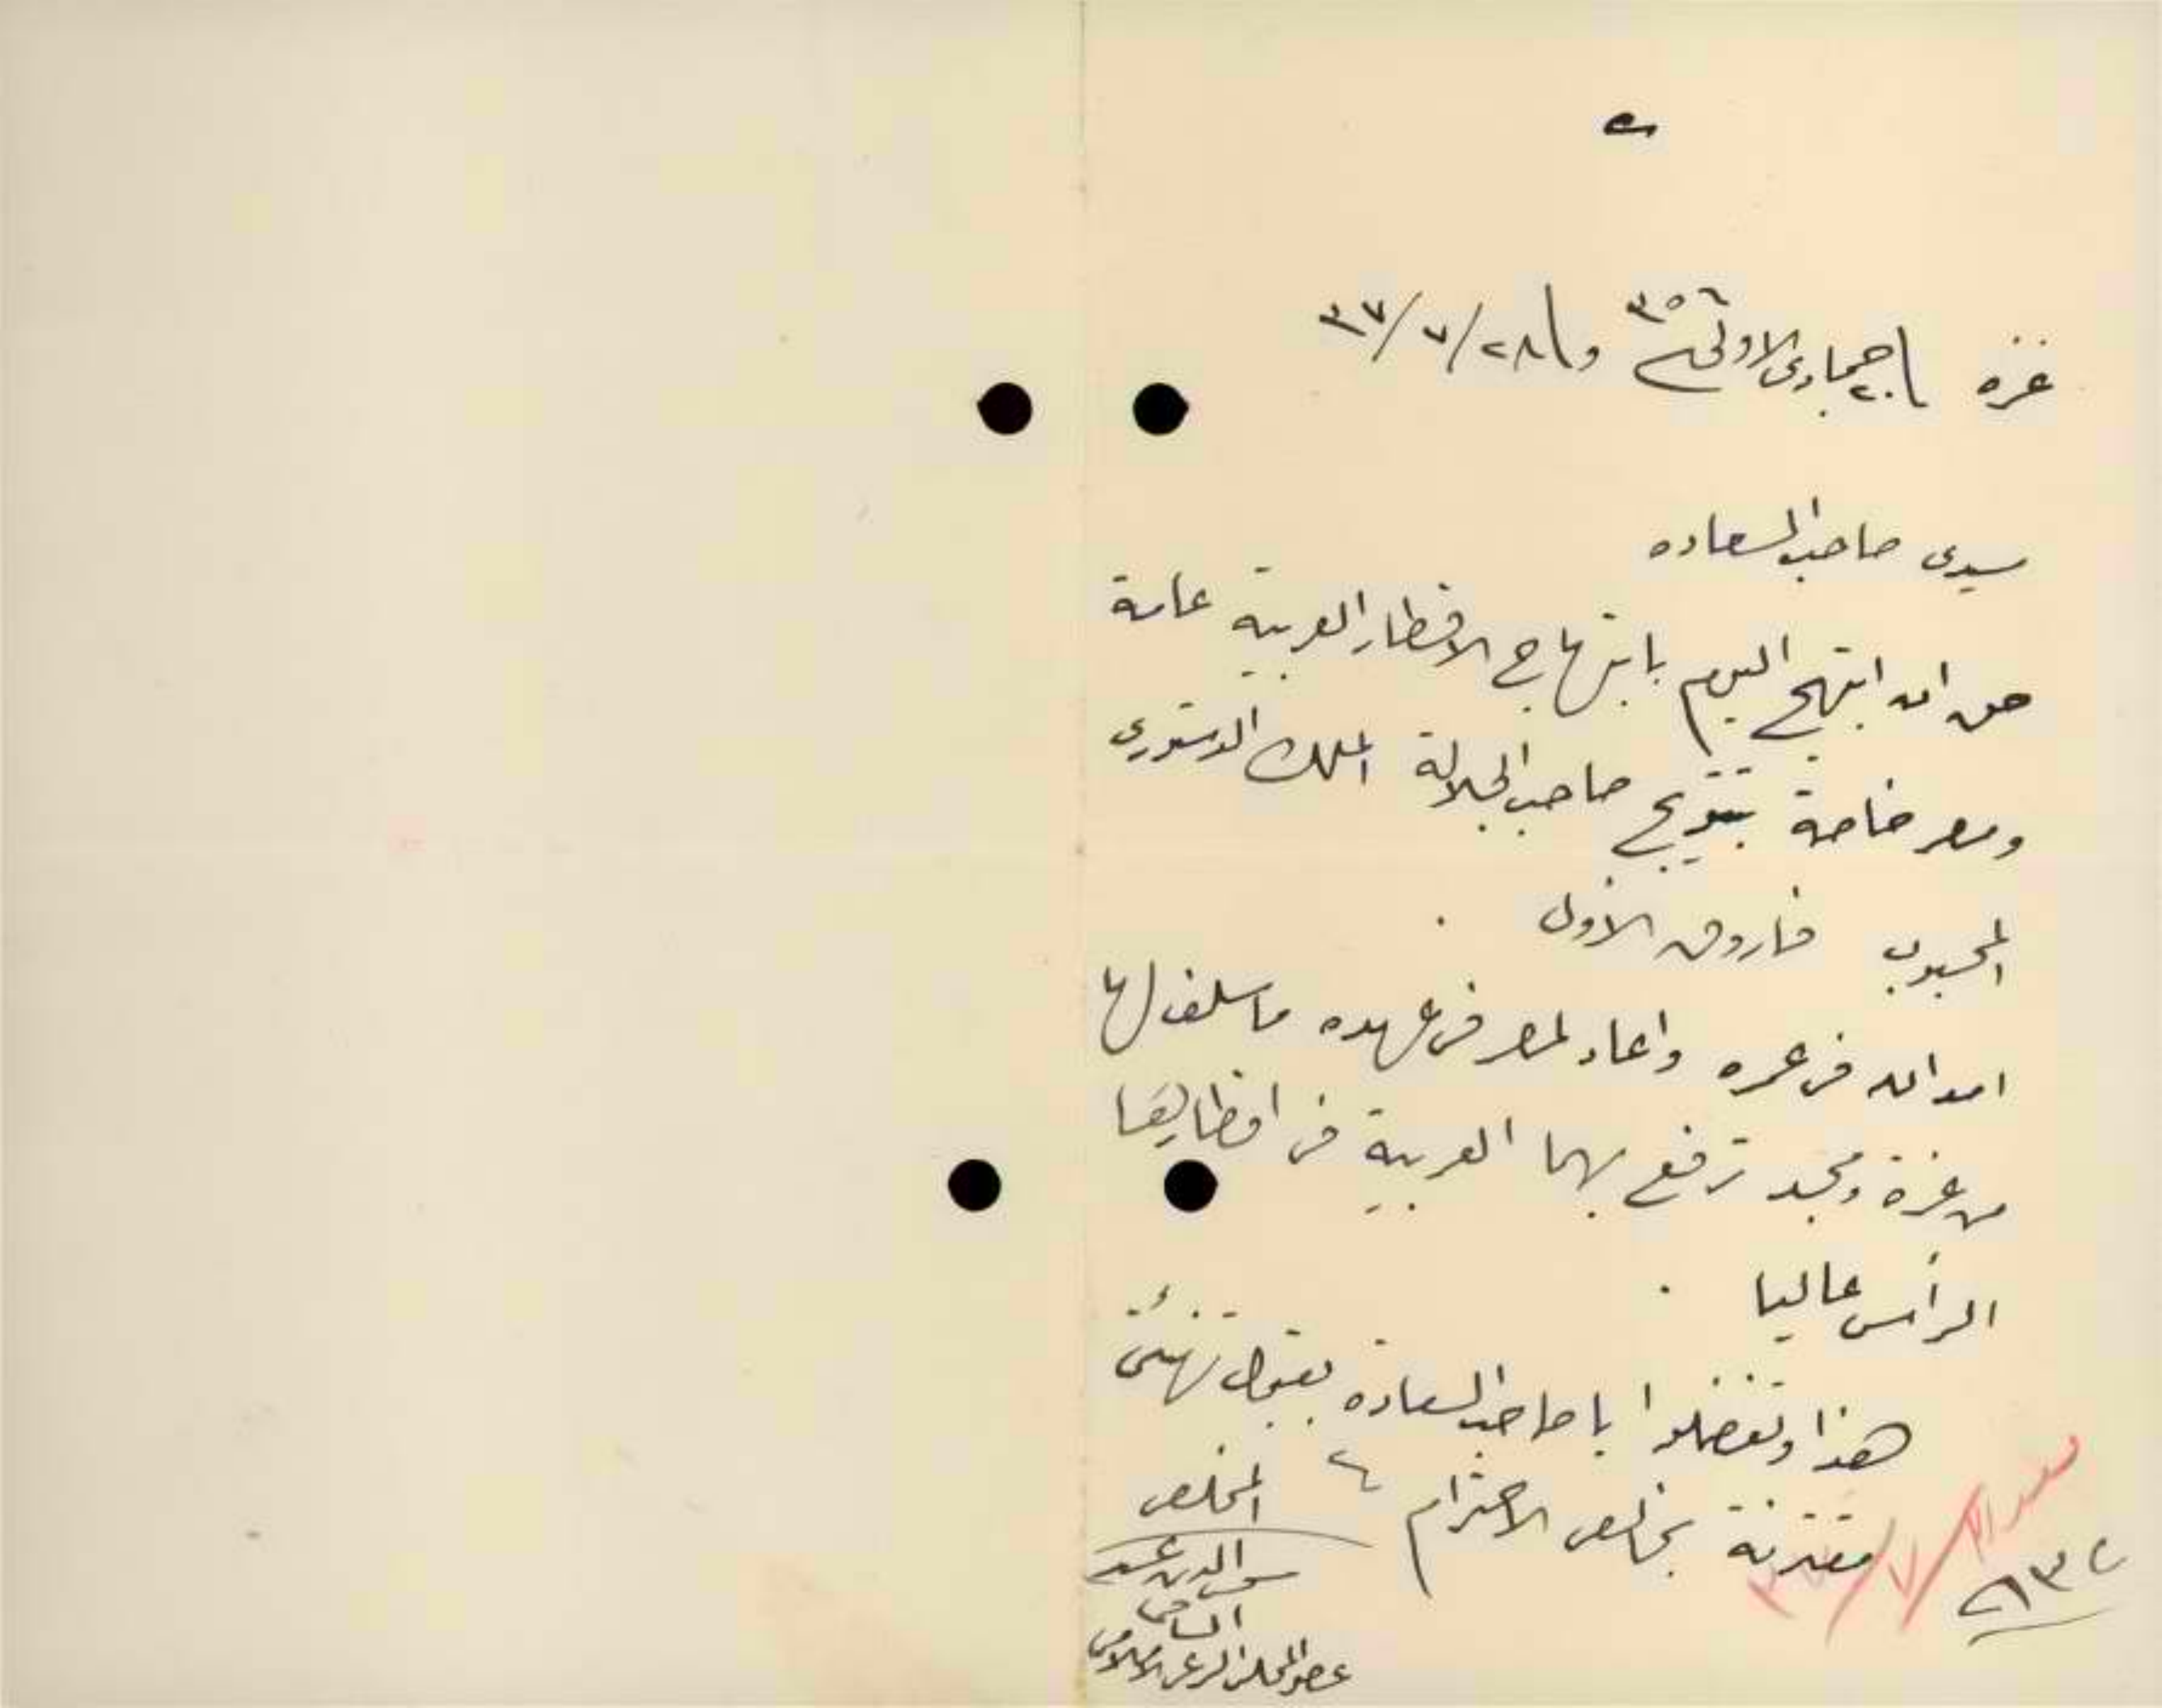 غزه ٢٠ جمادى الاولى ٣٥٦ و ٢٨/٧/٣٧
سيدى صاحب السعاده
حق ان ابتهج اليوم بابتهاج الاقطار العربية عامة
ومصر خاصة بتتويج صاحب الجلالة الملك الدستورى
المحبوب فاروق الاول .
امد الله فى عمره واعاد لمصر فى عهده ما سلف لها
من عزة ومجد ترفع بهما العربية فى اقطارها
الرأس عاليا .
هذا وتفضلوا يا صاحب السعادة بقبول تهنئتى
مقترنة بخالص الاحترام
المخلص
عضو المجلس الشرعى الاسلامى